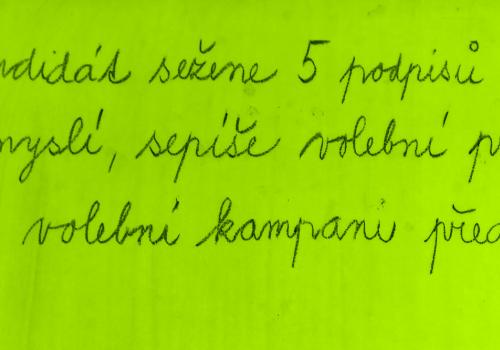 ndidát sežene 5 podpisů
myslí, sepíše volební p
volební kampani před